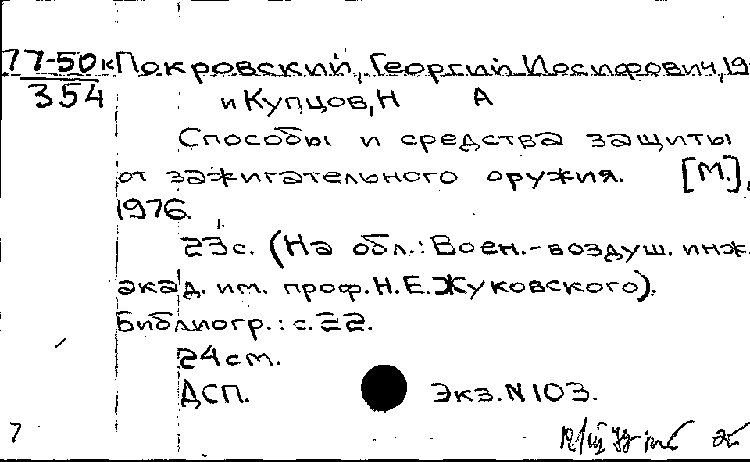 77-50к Покровский, Георгий Иосифович, 19
354 и Купцов, Н А
Способы и средства защиты
от зажигательного оружия. [М.],
1976.
23с. (На обл.: Воен.-воздуш. инж.
акад. им. проф. Н.Е. Жуковского).
Библиогр.: с. 22.
24см.
ДСП. Экз. N 103.
7